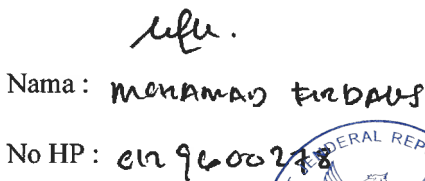 Nama : MOHAMAD FIRDAUS
No HP : 012 9600278
ENDERAL REP